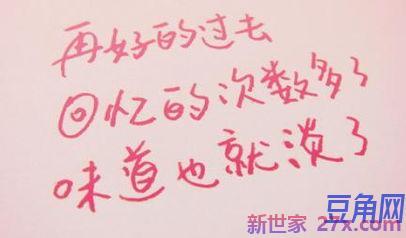 再好的过去
回忆的次数多了
味道也就淡了
豆角网
新世家 27x.com